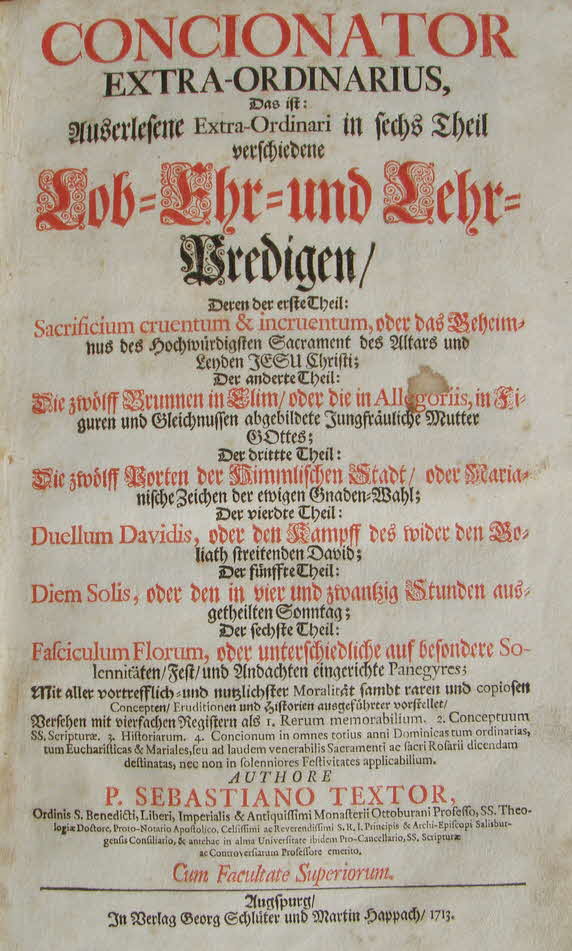 CONCIONATOR
EXTRA-ORDINARIUS,
Das ist:
Auserlesene Extra-Ordinari in sechs Theil
verschiedene
Lob-Ehr-und Lehr-
Predigen/
Deren der erste Theil:
Sacrificium cruentum & incruentum, oder das Geheim-
nus des Hochwürdigsten Sacrament des Altars und
Leyden JESU Christi;
Der anderte Theil:
Die zwölff Brunnen in Elim/ oder die in Allegoriis, in Fi-
guren und Gleichnussen abgebildete Jungfräuliche Mutter
GOttes;
Der drittte Theil:
Die zwölff Porten der Himmlischen Stadt/ oder Maria-
nische Zeichen der ewigen Gnaden-Wahl;
Der vierdte Theil:
Duellum Davidis, oder den Kampff des wider den Go-
liath streitenden David;
Der fünffte Theil:
Diem Solis, oder den in vier und zwantzig Stunden aus-
getheilten Sonntag;
Der sechste Theil:
Fasciculum Florum, oder unterschiedliche auf besondere So-
lennitäten/ Fest/ und Andachten eingerichte Panegyres;
Mit aller vortrefflich-und nutzlichster Moralität sambt raren und copiosen
Concepten/ Eruditionen und Historien ausgeführter vorstellet/
Versehen mit vierfachen Registern als 1. Rerum memorabilium. 2. Conceptuum
SS. Scripturæ. 3. Historiarum. 4. Concionum in omnes totius anni Dominicas tum ordinarias,
tum Eucharisticas & Mariales, seu ad laudem venerabilis Sacramenti ac sacri Rosarii dicendam
destinatas, nec non in solenniores Festivitates applicabilium.
AUTHORE
P. SEBASTIANO TEXTOR,
Ordinis S. Benedicti, Liberi, Imperialis & Antiquissimi Monasterii Ottoburani Professo, SS. Theo-
logiæ Doctore, Proto-Notario Apostolico, Celsissimi ac Reverendissimi S. R. I. Principis & Archi-Episcopi Salisbur-
gensis Consiliario, & antehac in alma Universitate ibidem Pro-Cancellario, SS. Scripturæ
ac Controversiarum Professore emerito.
Cum Facultate Superiorum.
Augspurg/
In Verlag Georg Schlüter und Martin Happach/ 1713.